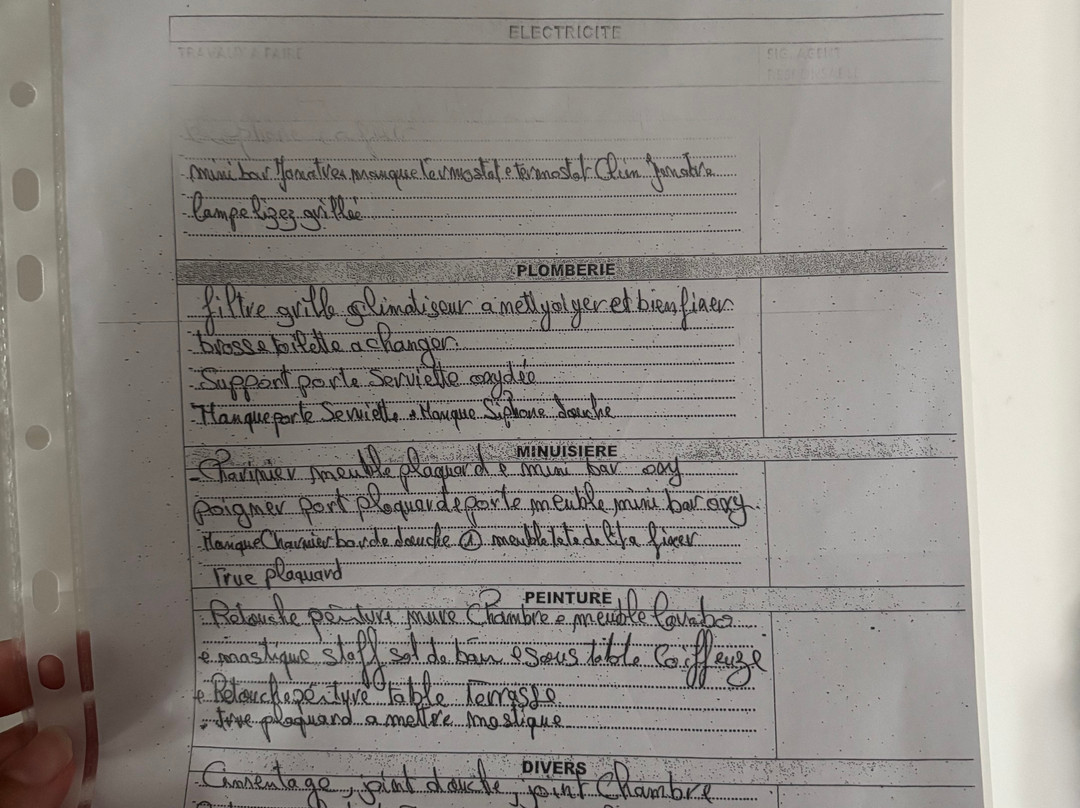 ELECTRICITE
TRAVAUX A FAIRE
SIG. AGENT
mini bar manque termostat e termostat Clim
lampe lizez grillée
PLOMBERIE
filtre grille climatiseur a et bien fixer
brosse toilette a changer
Support porte Serviette oxydée
Manque porte Serviette. Manque Siphone douche
MINUISIERE
- Charinier meuble plaquard e mini bar oxy
poigner port plaquard e porte meuble mini bar oxy.
Manque Charnier bar de douche ① meuble tete de lit a fixer
True plaquard
PEINTURE
Retouche peinture mure Chambre e meuble lavabo
e mastique staff sal de bain e sous table Coiffeuze
e Retouche péintyre table Terrasse
. true plaquard a mettre mastique
DIVERS
Cimentage, joint douche, joint Chambre